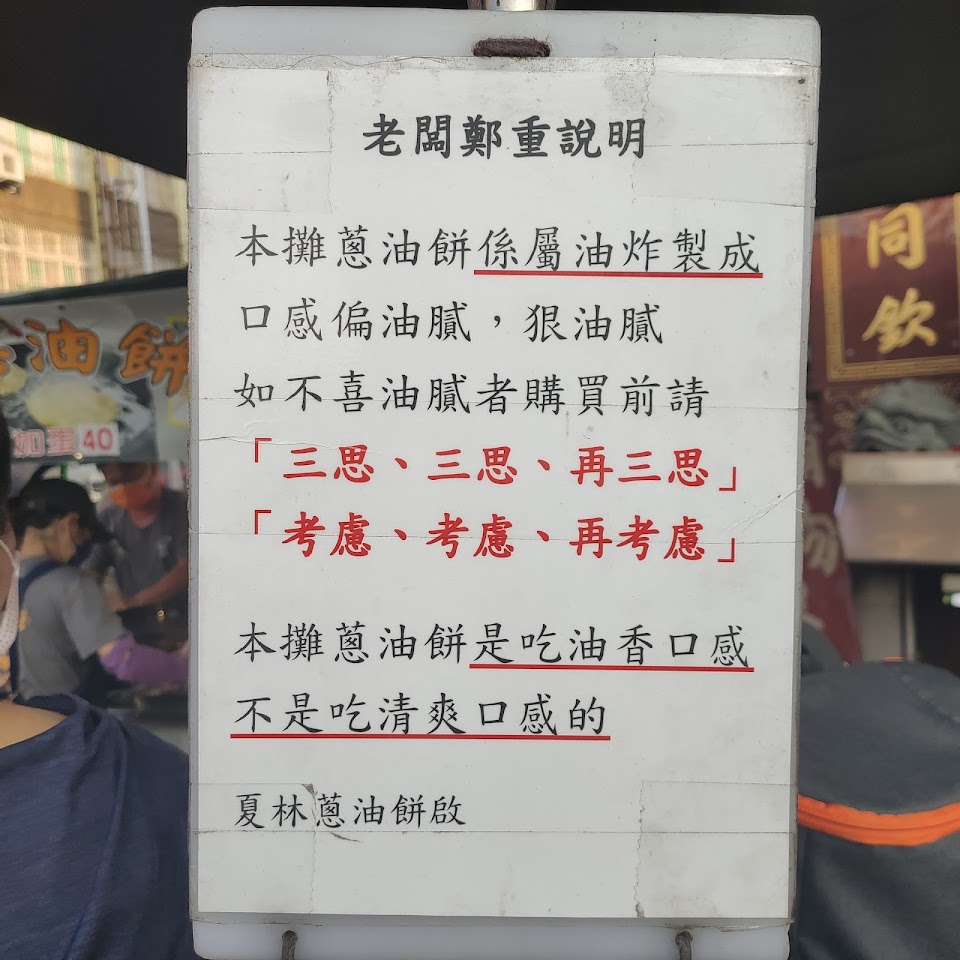 老闆鄭重說明
本攤蔥油餅係屬油炸製成
口感偏油膩，狠油膩
如不喜油膩者購買前請
「三思、三思、再三思」
「考慮、考慮、再考慮」
本攤蔥油餅是吃油香口感
不是吃清爽口感的
夏林蔥油餅啟
油餅
加蛋40
同
欽